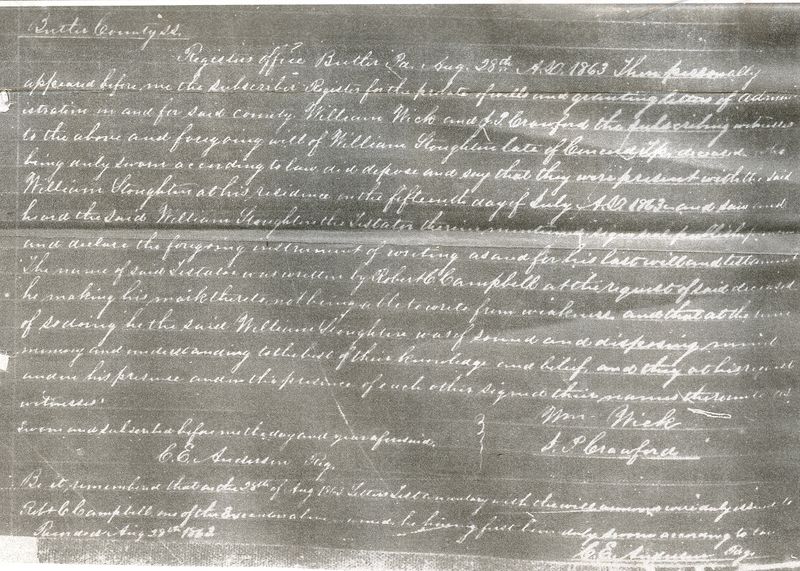 Butler County SS.
Registers office Butler Pa. Aug. 28th A.D. 1863 Then personally
appeared before me the subscriber Register for the probate of wills and granting letters of admin
istration in and for said county William Wick and J. P. Crawford the subscribing witnesses
to the above and foregoing will of William Sloughtin late of Concord Tp. deceased who
being duly sworn according to law, did depose and say that they were present with the said
William Sloughtin at his residence on the fifteenth day of July A.D. 1863 and saw and
heard the said William Sloughtin the Testator therein mentioned sign seal publish
and declare the foregoing instrument of writing as and for his last will and testament
The name of said Testator was written by Robert C Campbell at the request of said deceased
he making his mark thereto not being able to write from weakness and that at the time
of so doing he the said William Sloughtin was of sound and disposing mind
memory and understanding to the best of their knowledge and belief, and they at his request
and in his presence and in the presence of each other signed their names thereunto as
witnesses.
Wm Wick
Sworn and subscribed before me the day and year aforesaid.
J. P. Crawford
C. E. Anderson Reg.
Be it remembered that on the 28th of Aug 1863 Letters Testamentary with the will annexed were duly issued to
Robt C Campbell one of the Executors he having first been duly sworn according to law
Recorded Aug 28th 1863
C. E. Anderson Reg